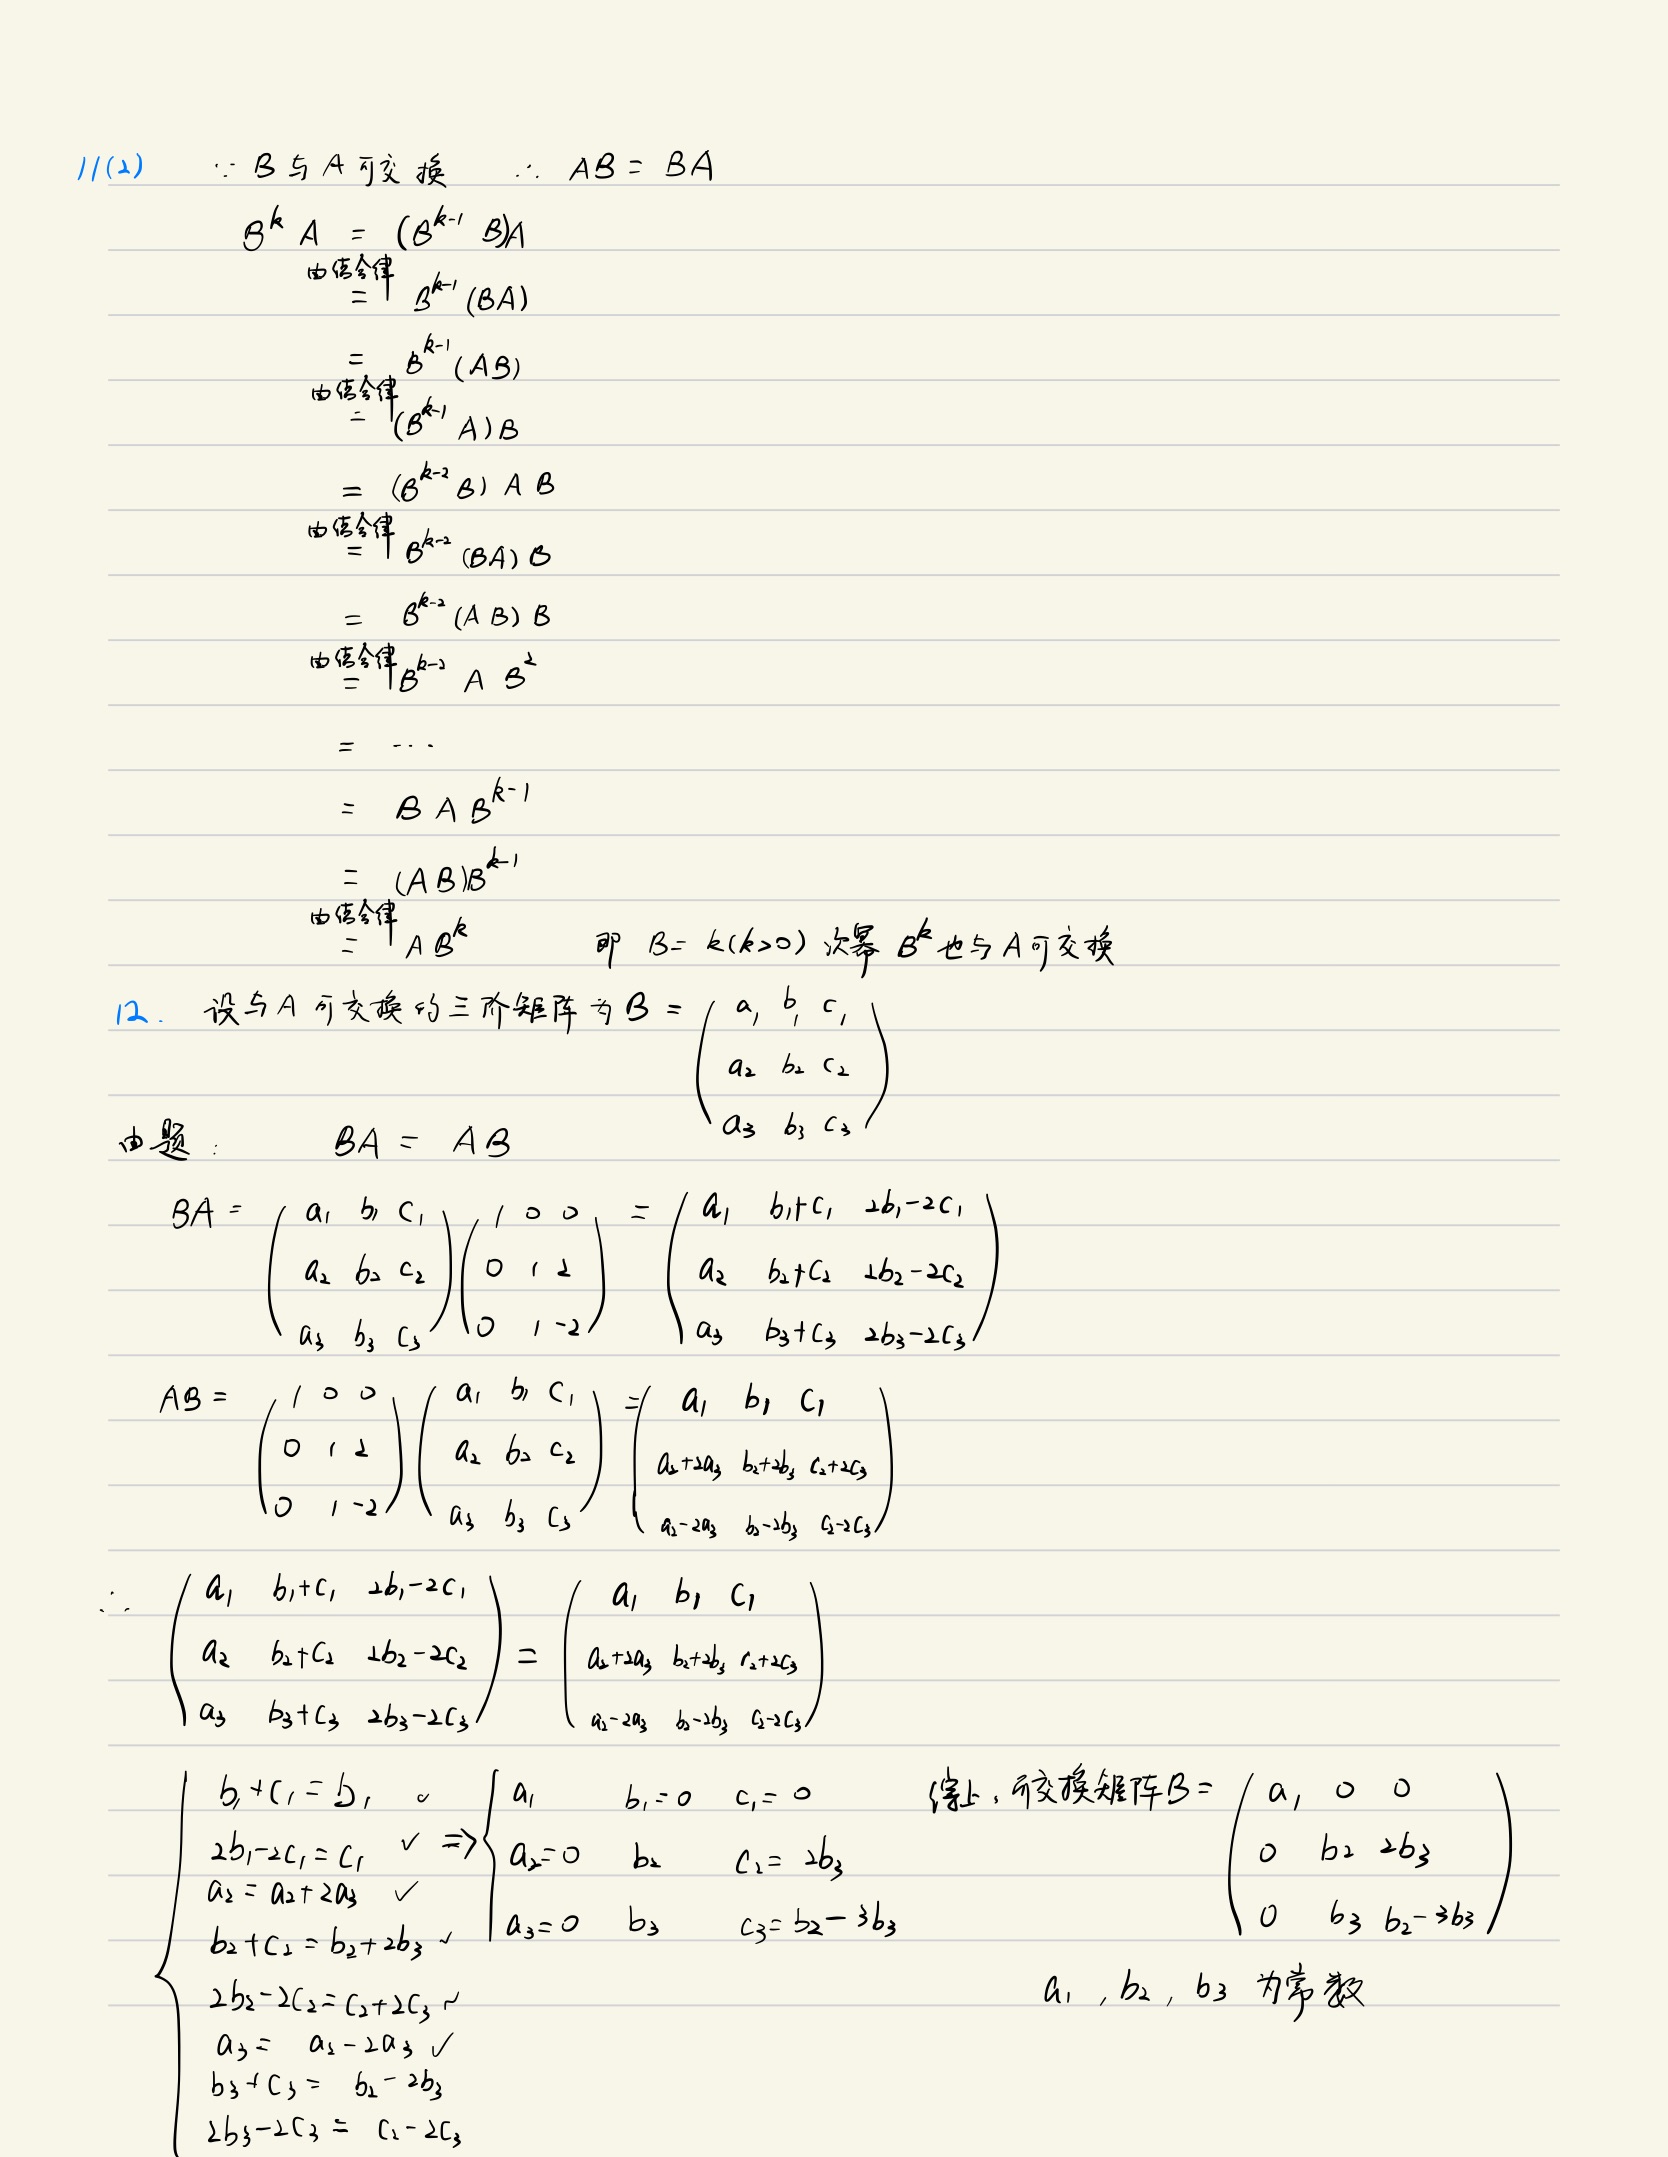 11(2) ∵ B与A可交换 ∴ AB = BA
B^k A = (B^{k-1} B)A
由结合律
= B^{k-1} (BA)
= B^{k-1} (AB)
由结合律
= (B^{k-1} A) B
= (B^{k-2} B) A B
由结合律
= B^{k-2} (BA) B
= B^{k-2} (A B) B
由结合律
= B^{k-2} A B^2
= ...
= B A B^{k-1}
= (A B)B^{k-1}
由结合律
= A B^k 即 B= k(k>0) 次幂 B^k 也与A可交换
12. 设与A可交换的三阶矩阵为B = ( a₁ b₁ c₁
a₂ b₂ c₂
a₃ b₃ c₃ )
由题: BA = AB
BA = ( a₁ b₁ c₁ ) ( 1 0 0 ) = ( a₁ b₁+c₁ 2b₁-2c₁ )
( a₂ b₂ c₂ ) ( 0 1 2 ) ( a₂ b₂+c₂ 2b₂-2c₂ )
( a₃ b₃ c₃ ) ( 0 1 -2 ) ( a₃ b₃+c₃ 2b₃-2c₃ )
AB = ( 1 0 0 ) ( a₁ b₁ c₁ ) = ( a₁ b₁ c₁ )
( 0 1 2 ) ( a₂ b₂ c₂ ) ( a₂+2a₃ b₂+2b₃ c₂+2c₃ )
( 0 1 -2 ) ( a₃ b₃ c₃ ) ( a₂-2a₃ b₂-2b₃ c₂-2c₃ )
∴ ( a₁ b₁+c₁ 2b₁-2c₁ ) ( a₁ b₁ c₁ )
( a₂ b₂+c₂ 2b₂-2c₂ ) = ( a₂+2a₃ b₂+2b₃ c₂+2c₃ )
( a₃ b₃+c₃ 2b₃-2c₃ ) ( a₂-2a₃ b₂-2b₃ c₂-2c₃ )
b₁+c₁ = b₁ ✓
2b₁-2c₁ = c₁ ✓ ⇒
a₂ = a₂+2a₃ ✓
b₂+c₂ = b₂+2b₃ ✓
2b₂-2c₂ = c₂+2c₃ ✓
a₃ = a₂-2a₃ ✓
b₃+c₃ = b₂-2b₃
2b₃-2c₃ = c₂-2c₃
a₁ b₁=0 c₁=0
a₂=0 b₂ c₂= 2b₃
a₃=0 b₃ c₃= b₂-3b₃
综上,可交换矩阵B = ( a₁ 0 0
0 b₂ 2b₃
0 b₃ b₂-3b₃ )
a₁, b₂, b₃ 为常数